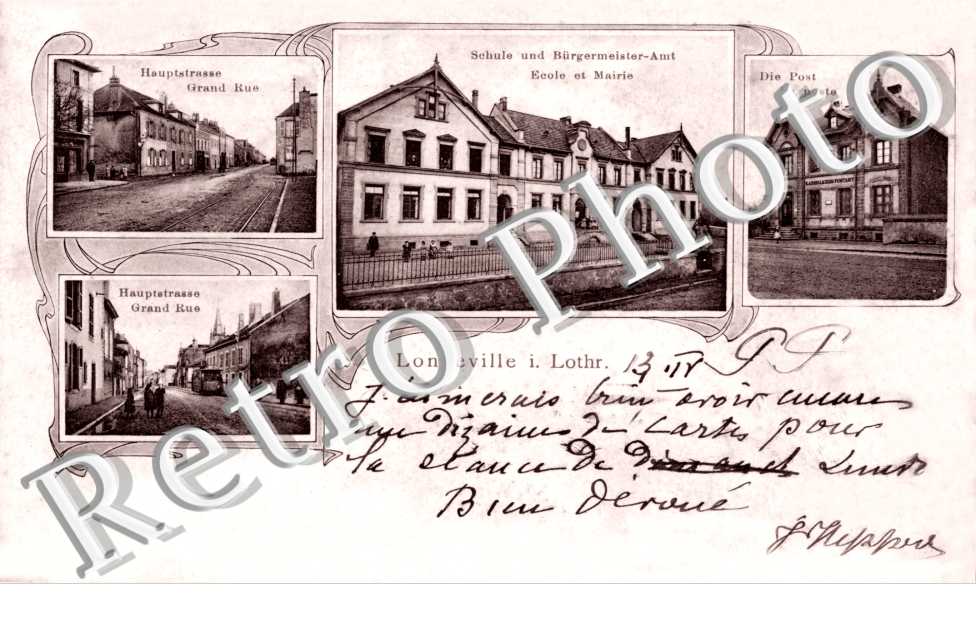 Hauptstrasse
Grand Rue
Schule und Bürgermeister-Amt
Ecole et Mairie
Die Post
poste
KAISERLICHES POSTAMT
Hauptstrasse
Grand Rue
Longeville i. Lothr. 13 IV
J'aimerais bien avoir encore
une dizaine de cartes pour
la séance de Lundi
Bien Dévoué
Retro Photo